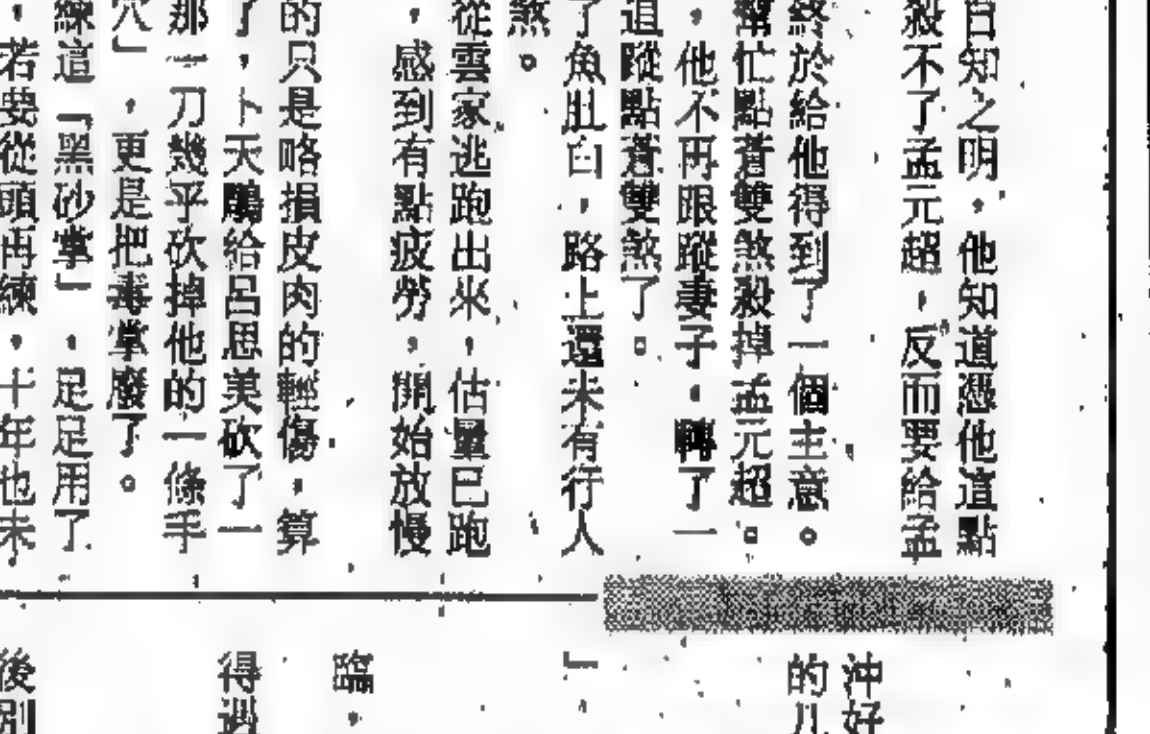 自知之明，他知道憑他這點
殺不了孟元超，反而要給孟
終於給他得到了一個主意。
幫忙點蒼雙煞殺掉孟元超。
，他不再跟蹤妻子，轉了一
道蹤點蒼雙煞了。
了魚肚白，路上還未有行人
煞。
從雲家逃跑出來，估量已跑
，感到有點疲勞，開始放慢
的只是略損皮肉的輕傷，算
了，卜天鵰給呂思美砍了一
那一刀幾乎砍掉他的一條手
穴」，更是把毒掌廢了。
練這「黑砂掌」，足足用了
，若要從頭再練，十年也未
沖好
的几
」，
臨，
得過
後別